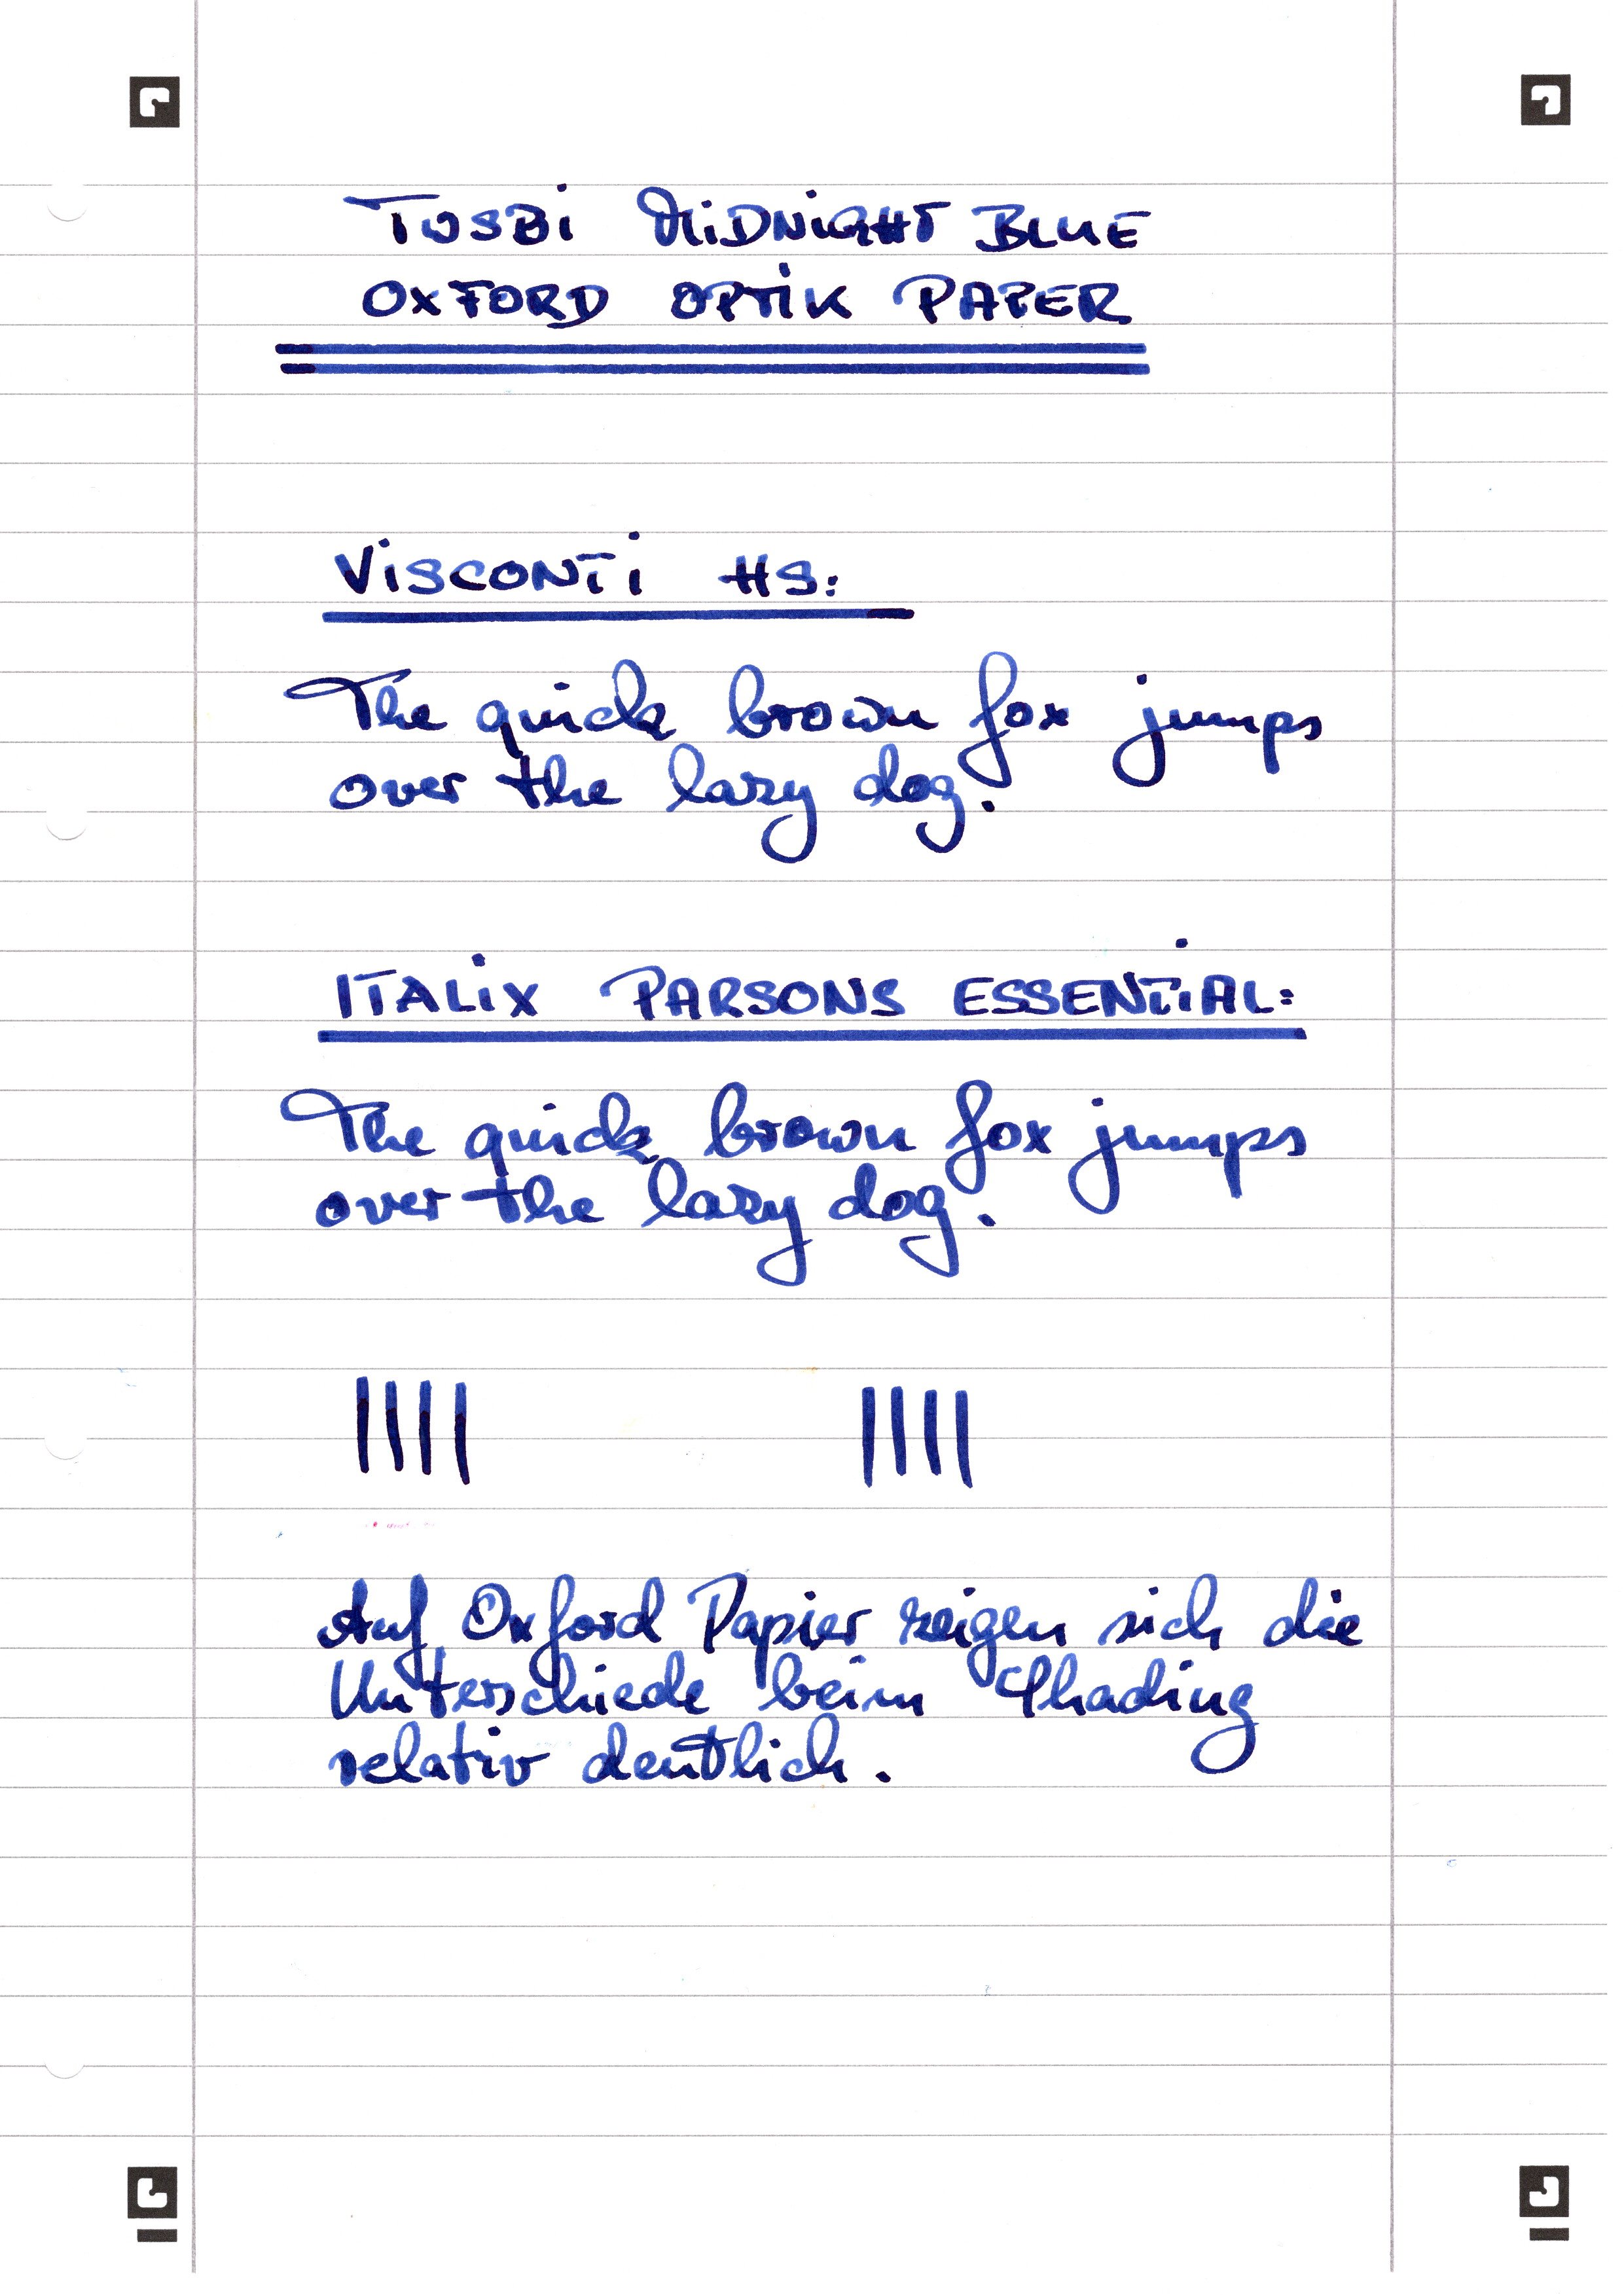 TWSBi MiDNiGHT BLUE
OXFORD OPTiK PAPER
ViSCONTi HS:
The quick brown fox jumps
over the lazy dog.
ITALiX PARSONS ESSENTiAL:
The quick brown fox jumps
over the lazy dog.
Auf Oxford Papier zeigen sich die
Unterschiede beim Shading
relativ deutlich.